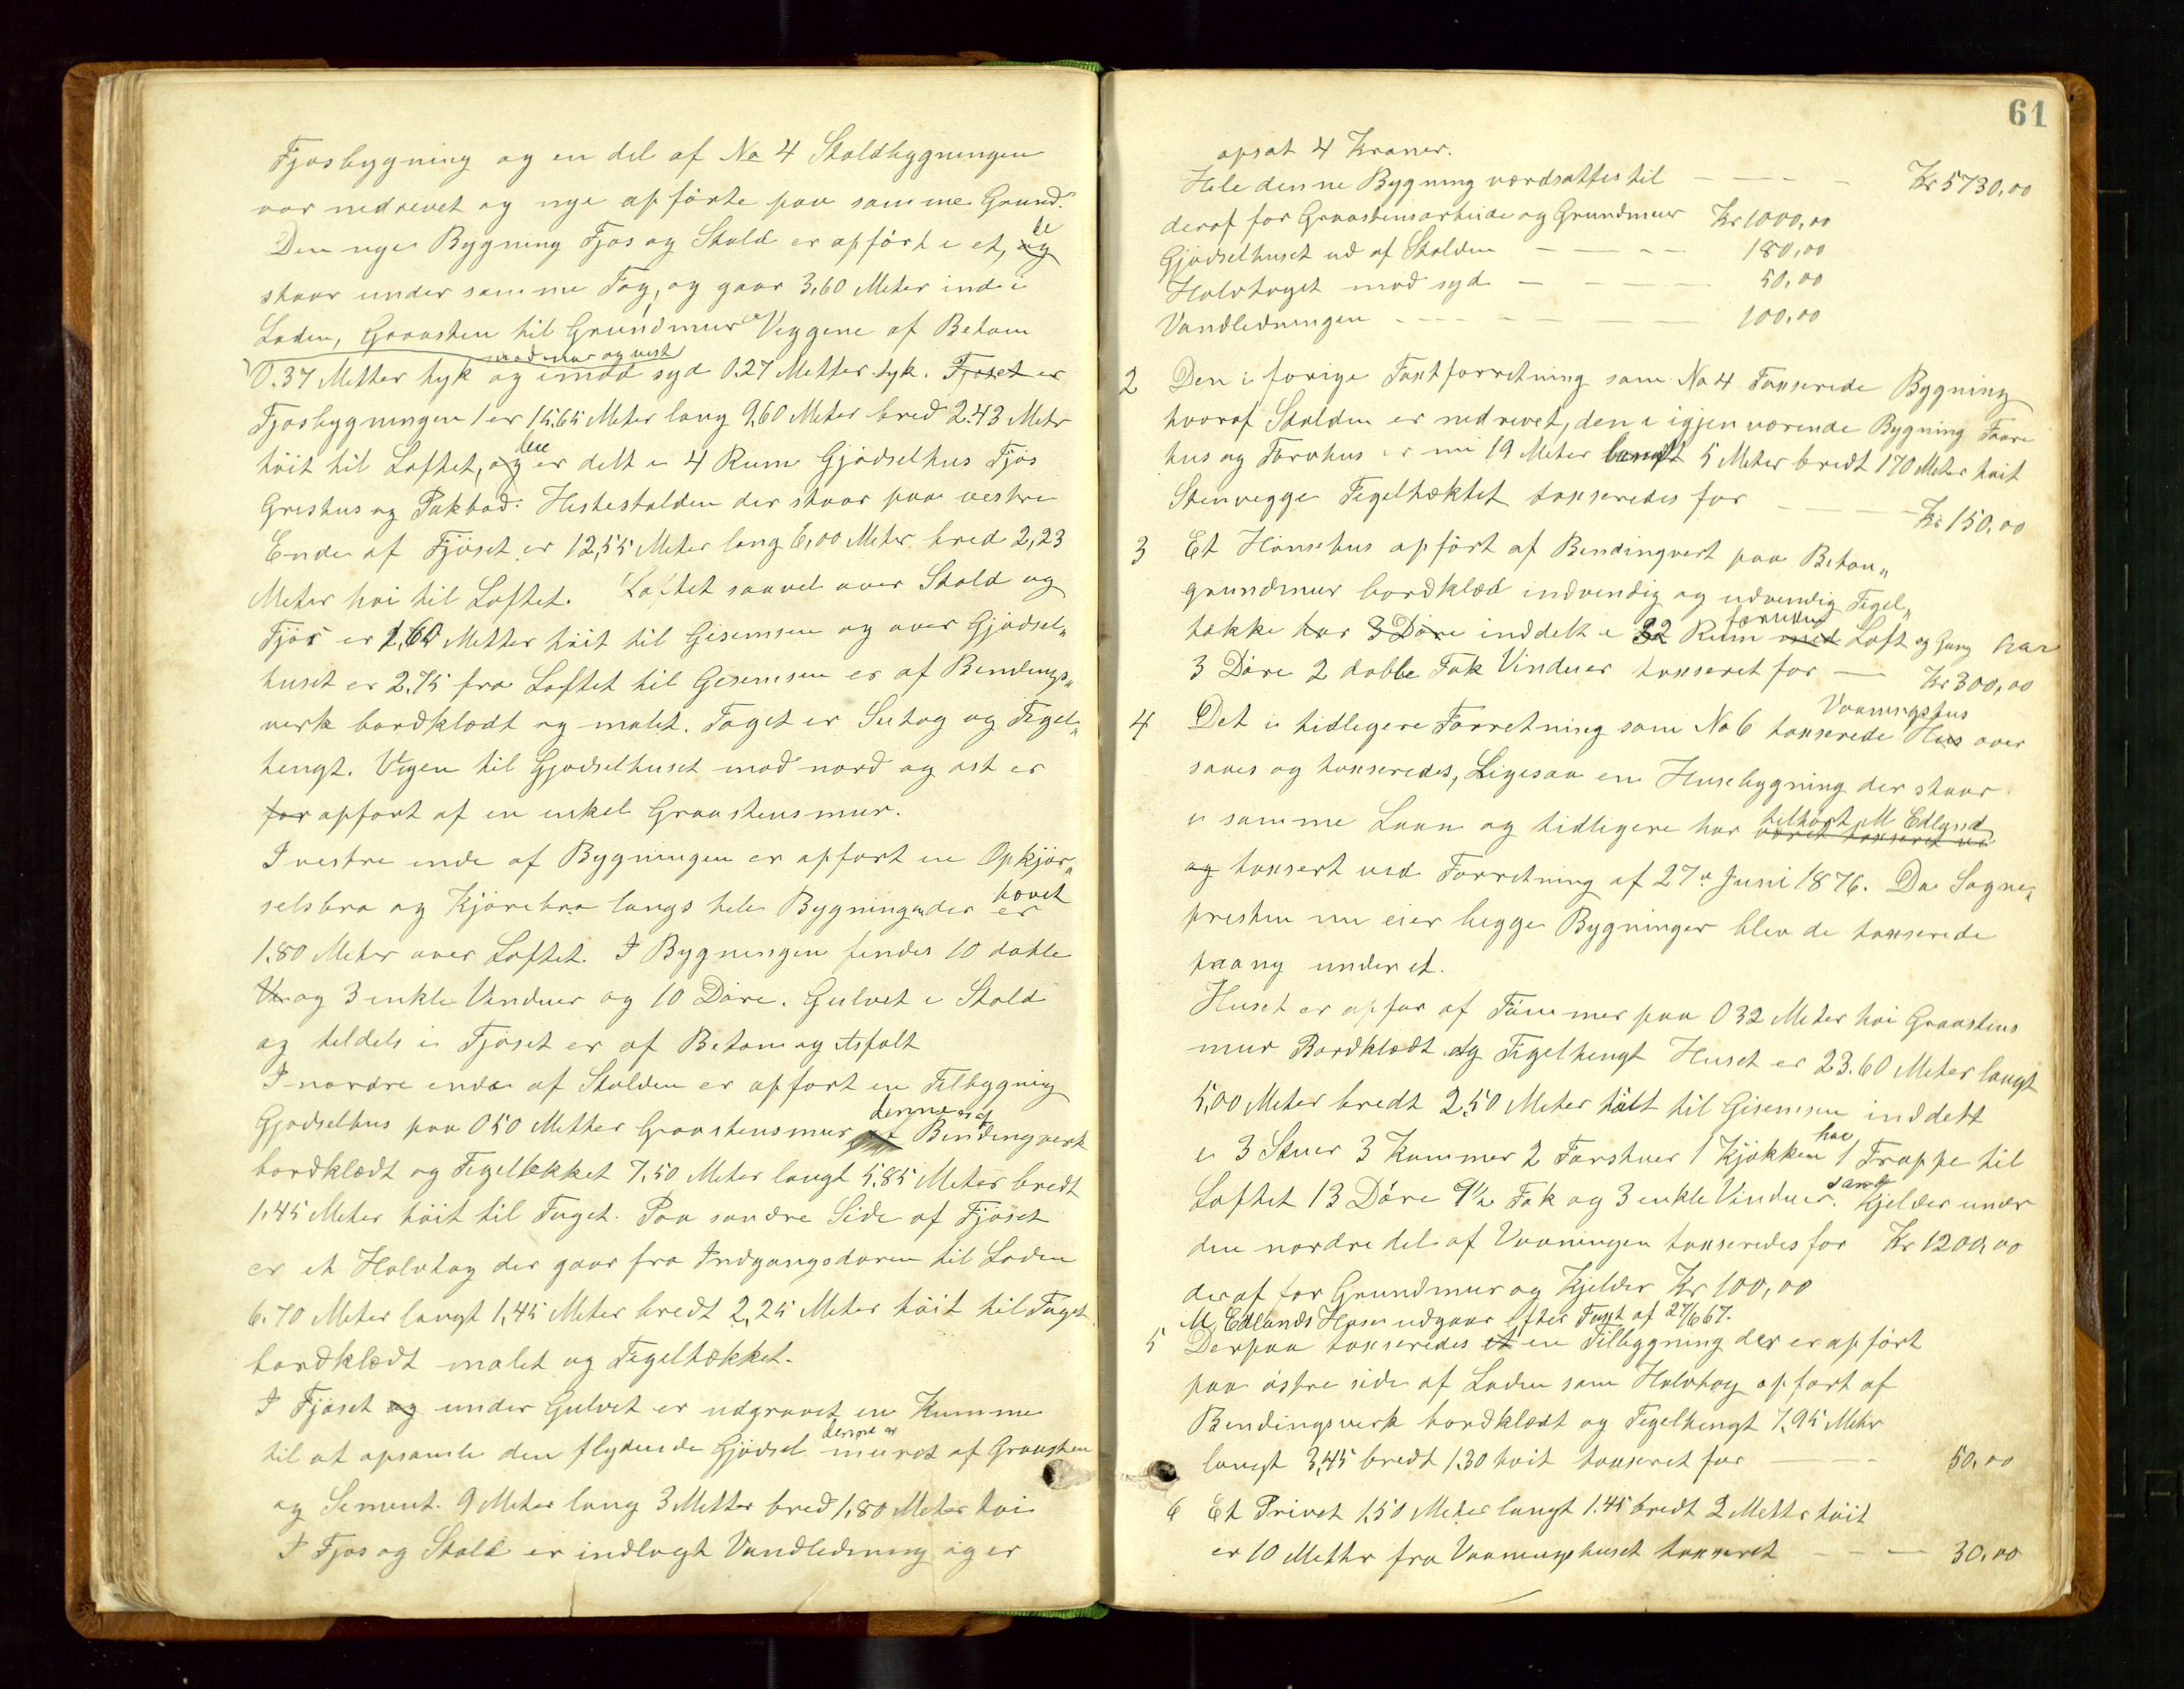 Fjosbygning og en del af No 4 Staldbygningen
var nedrevet og nye opførte paa samme Grund.
Den nye Bygning Fjos og Stald er opført i et, og de
staar under samme Tag, og gaar 3,60 Meter ind i
Laden, Graasten til Grundmur Veggene af Betom
0.37 Metter tyk og mod nor og vest imod syd 0.27 Metter tyk. Fjoset er
Fjosbygningen er 15,65 Meter lang 9,60 Meter bred 2.43 Metr
høit til Loftet, og er delt i 4 Rum Gjødselhus Fjøs
Grishus og Pakbod. Hestestalden der staar paa vestre
Ende af Fjøset er 12,55 Meter lang 6,00 Meter bred 2,23
Meter høi til Loftet. Loftet saavel over Stald og
Fjøs er 1,60 Metter høit til Gisemsen og over Gjødsel„
huset er 2.75 fra Loftet til Gesemsen er af Bendings„
verk bordklædt og malet. Taget er Sutag og Tegel„
hengt. Vegen til Gjødselhuset mod nord og øst er
for opført af en enkel Graastensmur.
I vestre ende af Bygningen er opført en Opkjør„
selsbro og Kjørebro langs hele Bygningen der er hævet
1.80 Meter over Loftet. I Bygningen findes 10 doble
og 3 enkle Vinduer og 10 Døre. Gulvet i Stald
og teldels i Fjøset er af Betom og Asfalt
I nordre ende af Stalden er opført en Tilbygning
Gjødselhus paa 050 Metter Graastensmur denne er af Bendingverk
bordklædt og Tegeltekket 7,50 Meter langt 5.85 Meter bredt
1.45 Meter høit til Taget. Paa søndre Side af Fjøset
er et Halvtag der gaar fra Indgangsdøren til Laden
6.70 Meter langt 1,45 Meter bredt 2,25 Meter høit til Taget
bordklædt malet og Tegeltækket.
I Fjøset og under Gulvet er udgravet en Kumme
til at opsamle den flydende Gjødsel denne er muret af Graasten
og Sement. 9 Meter lang 3 Metter bred 1,80 Meter høi
I Fjos og Stald er indlagt Vandledning og er
61
opsat 4 Kraner.
Hele denne Bygning værdsattes til Kr 5730,00
deraf for Graastensarbeide og Grundmur Kr 1000,00
Gjødselhuset ud af Stalden 180,00
Halvtaget mod syd 50,00
Vandledningen 100,00
2 Den i forige Taxtforretning som No 4 Taxerede Bygning
hvoraf Stalden er nedrevet, den i igjen værende Bygning Faare
hus og Torvhus er nu 19 Meter langt 5 Meter bredt 170 Meter høit
Stenvegge Tegeltæktet taxseredes for Kr 150,00
3 Et Hønsehus opført af Bendingverk paa Beton„
grundmur bordklæd indvendig og udvendig Tegel„
tække har 3 Døre inddelt i 2 Rum foruden med Loft og Gang har
3 Døre 2 doble Fak Vinduer taxseret for Kr 300,00
4 Det i tidligere Forretning som No 6 taxserede Hus Vaaningshus over
saaes og taxseredes, Ligesaa en Husebygning der staar
i samme Laan og tidligere har tilhørt M Edland været taxseret
og taxsert ved Forretning af 27de Juni 1876. Da Sogne„
presten nu eier begge Bygninger blev de taxserede
paa ny under et.
Huset er opfør af Tømmer paa 032 Meter høi Graastens
mur Bordklædt og Tegelhengt Huset er 23.60 Meter langt
5,00 Meter bredt 2,50 Meter høit til Gisemsen inddelt
i 3 Stuer 3 Kammer 2 Forstuer 1 Kjøkken har 1 Trappe til
Loftet 13 Døre 9½ Fak og 3 enkle Vinduer. samt Kjelder under
den nordre del af Vaaningen taxseredes for Kr 1200,00
deraf for Grundmur og Kjelder Kr 100,00
M. Edlands Huse udgaar efter Taxt af 27/6 67.
5 Derpaa taxseredes et en Tilbygning der er opført
paa østre side af Laden som Halvtag opført af
Bendingsverk bordklædt og Tegelhengt 7.95 Metr
langt 3,45 bredt 1.30 høit taxseret for 50,00
6 Et Privet 1,50 Meter langt 1.45 bredt 2 Metter høit
er 10 Metter fra Vaaningshuset taxseret 30,00